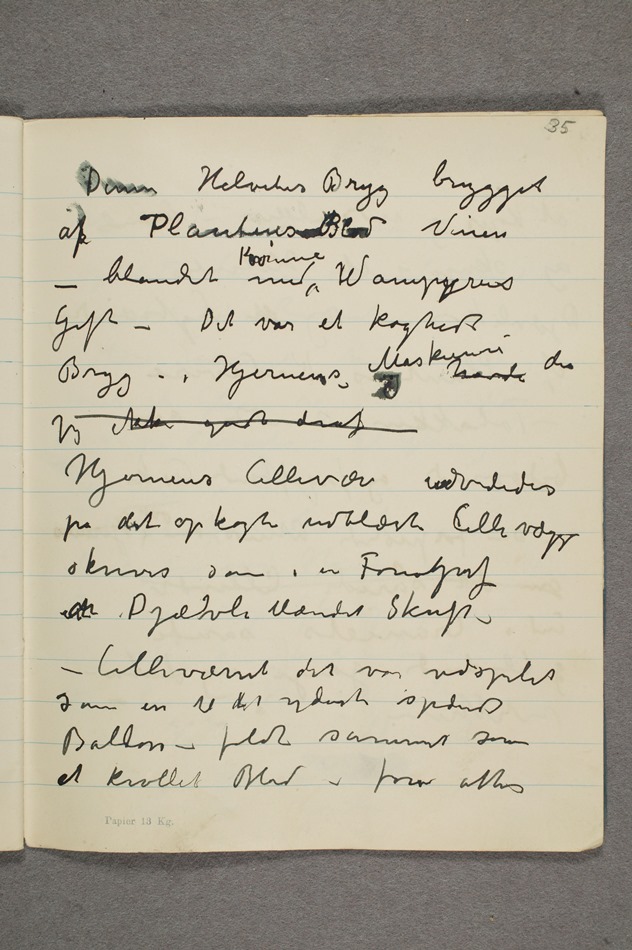 35
Denne Helvedes Bryg brygget
af Plantens Blod Vinen
– blandet med Kvinne Wampyrens
Gift – Det var et koghedt
Bryg – i Hjernens Maskineri havde der
jeg ikke godt deraf
Hjernens Cellevæv udvidedes
på det opkogte udblæste Cellevægge
skrives som i en Fonograf
Djævleblændet Skrift –
– Cellevævet det var udspilet
som en til det yderste spændt
Ballon – faldt sammen som
et krøllet Blad – for attes
Papier 13 Kg.